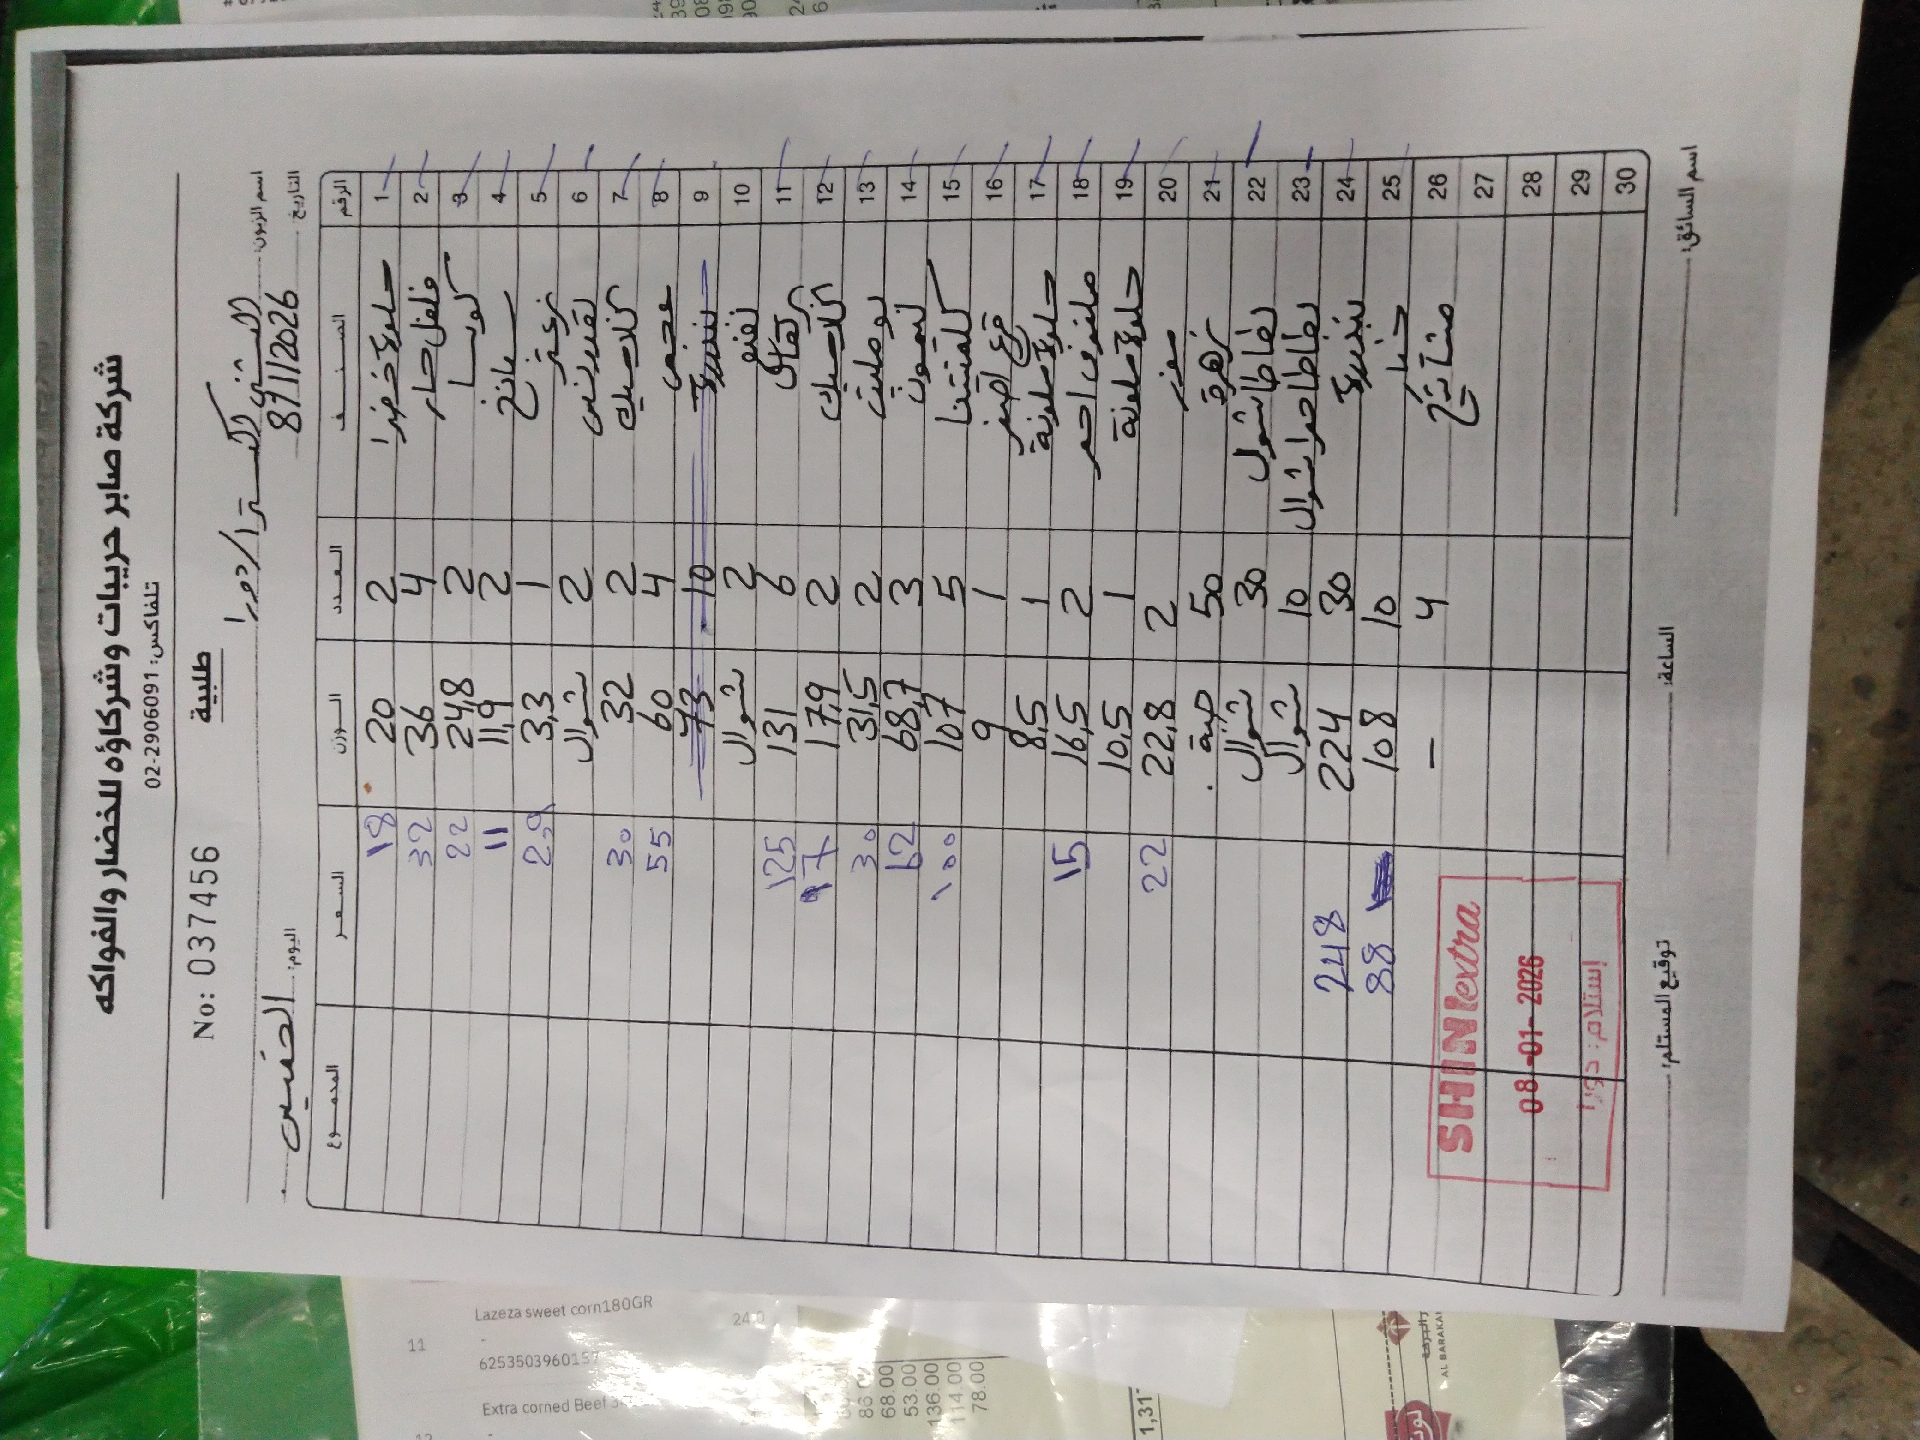 شركة صابر حريبات وشركاؤه للخضار والفواكه
تلفاكس: 02-2906091
طلبية
No: 037456
اسم الزبون: الشني اكسترا/دورا
التاريخ: 8/1/2026 اليوم: الخميس
الرقم الصنف العدد الوزن السعر المجموع
1 حلوة خضرا 2 20 18
2 فلفل حار 4 36 32
3 كوسا 2 24,8 22
4 سبانخ 2 11,9 11
5 زعتر 1 3,3 2,9
6 2 شوال
7 كلاسيك 2 32 30
8 عجمي 4 60 55
9 بندورة 10 73
10 2 شوال
11 برتقال 6 131 125
12 كلاسيك 2 17,9 17
13 بوملي 2 31,5 30
14 ليمون 3 68,7 62
15 كلمنتينا 5 107 100
16 قرع اصفر 1 9
17 حلوة ملونة 1 8,5
18 ملفوف احمر 2 16,5 15
19 حلوة ملونة 1 10,5
20 موز 2 22,8 22
21 زهرة 50 حبة
22 بطاطا شوال 30 شوال
23 بطاطا حمرا شوال 10 شوال
24 بندورة 30 224 248
25 خيار 10 108 88
26 مشاتيح 4 —
27
28
29
30
SHINI extra
08-01-2026
إستلام: دورا
اسم السائق: الساعة: توقيع المستلم:
Lazeza sweet corn180GR
24.0
11
-
Extra corned Beef
68.00
53.00
136.00
114.00
78.00
1,31
AL BARAKA